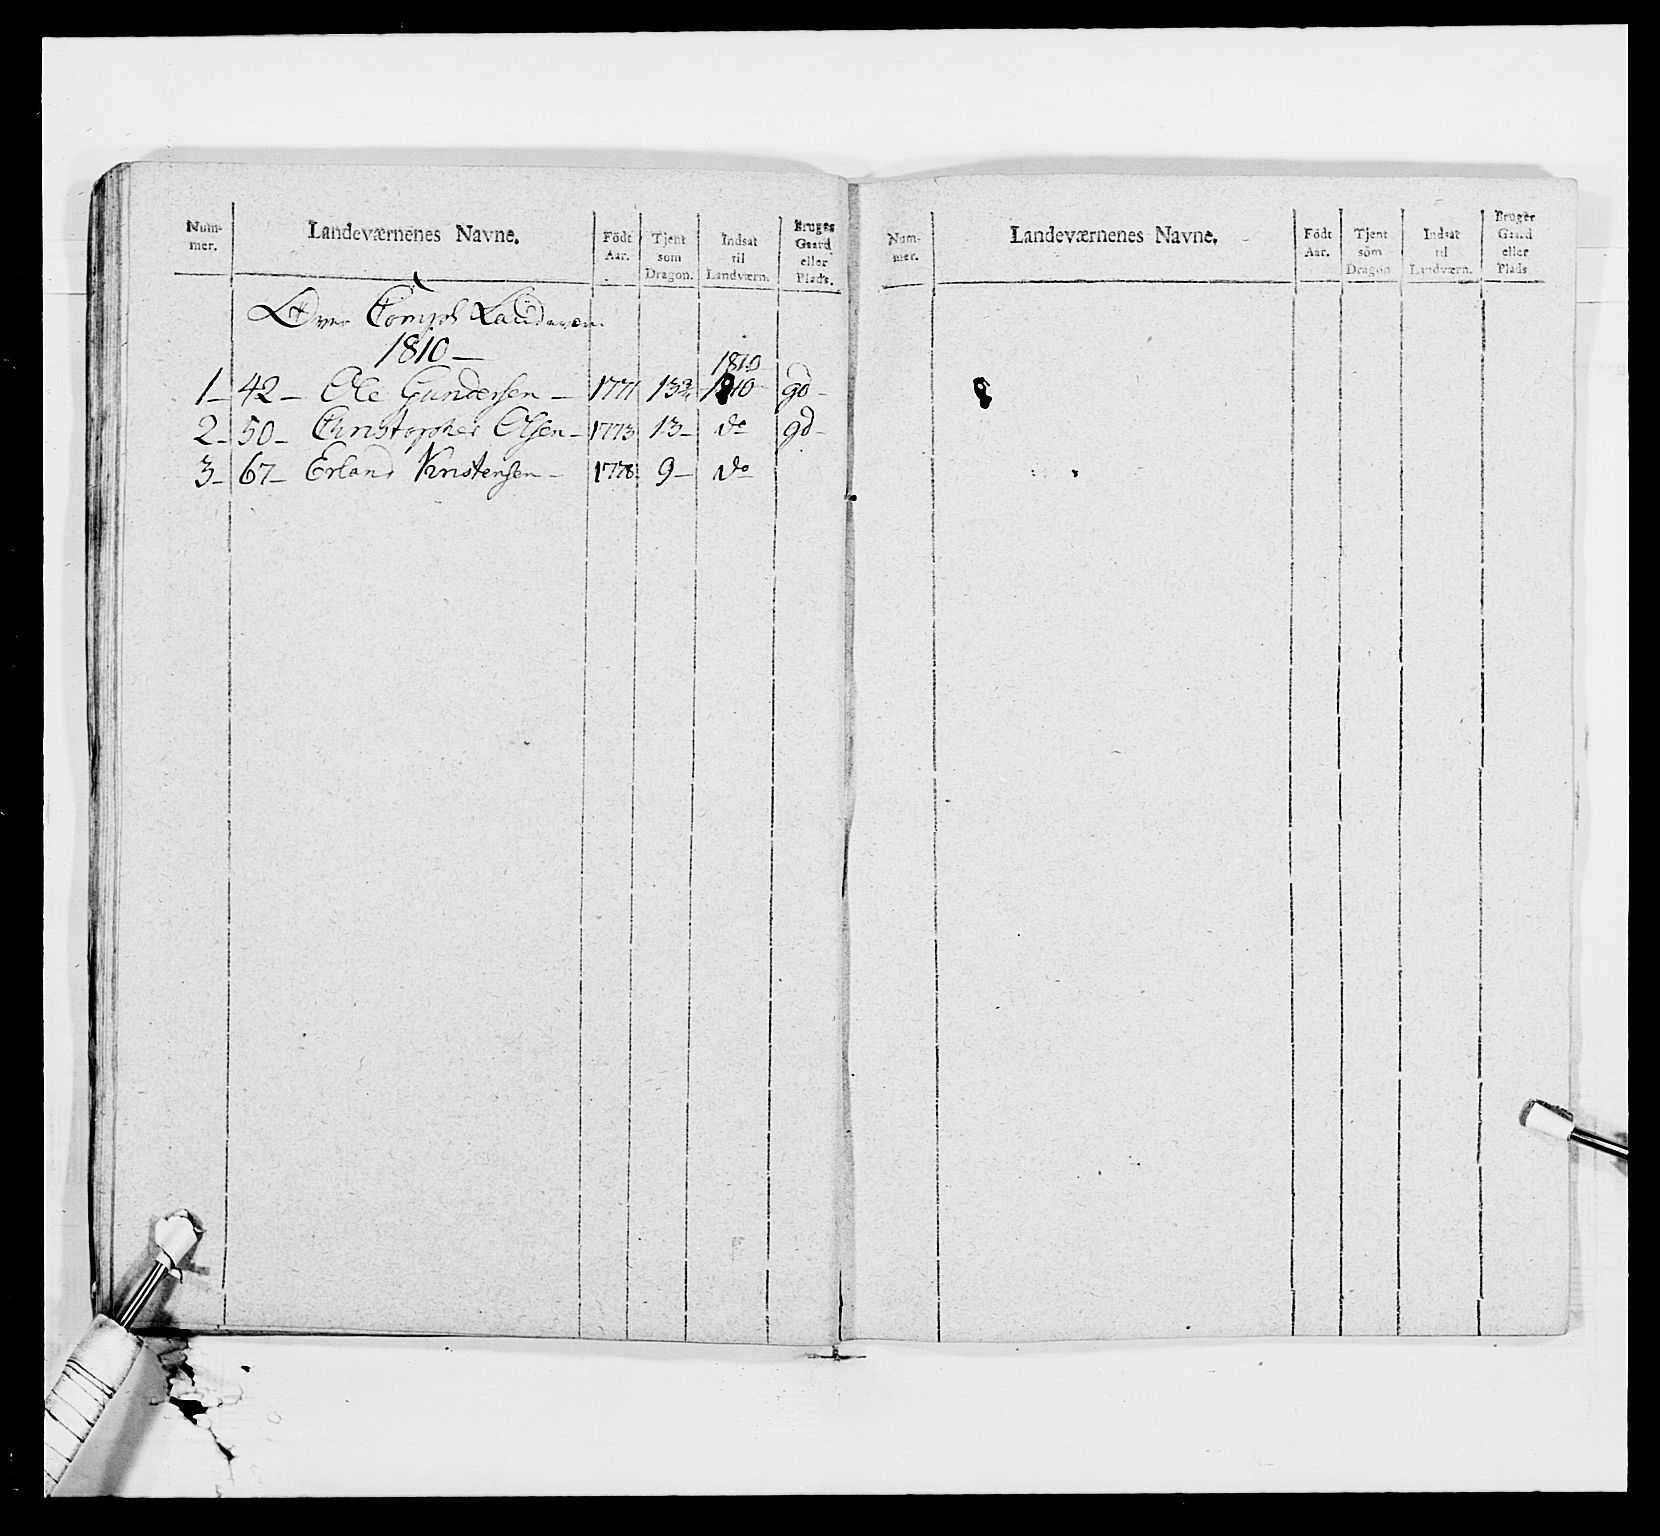 Num-
mer.
Landeværnenes Navne.
Födt
Aar.
Tjent
som
Dragon.
Indsat
til
Landværn.
Bruger
Gaard
eller
Plads.
Over Compl Landeværn
1810 —
1810
1 – 42 – Ole Gundersen – 1771 13¾ 1810 gd –
2 – 50 – Christopher Olsen – 1773 13 – do gd –
3 – 67 – Erland Kristensen – 1778 9 – do
Num-
mer.
Landeværnenes Navne.
Födt
Aar.
Tjent
som
Dragon
Indsat
til
Landværn.
Bruger
Gaard
eller
Plads